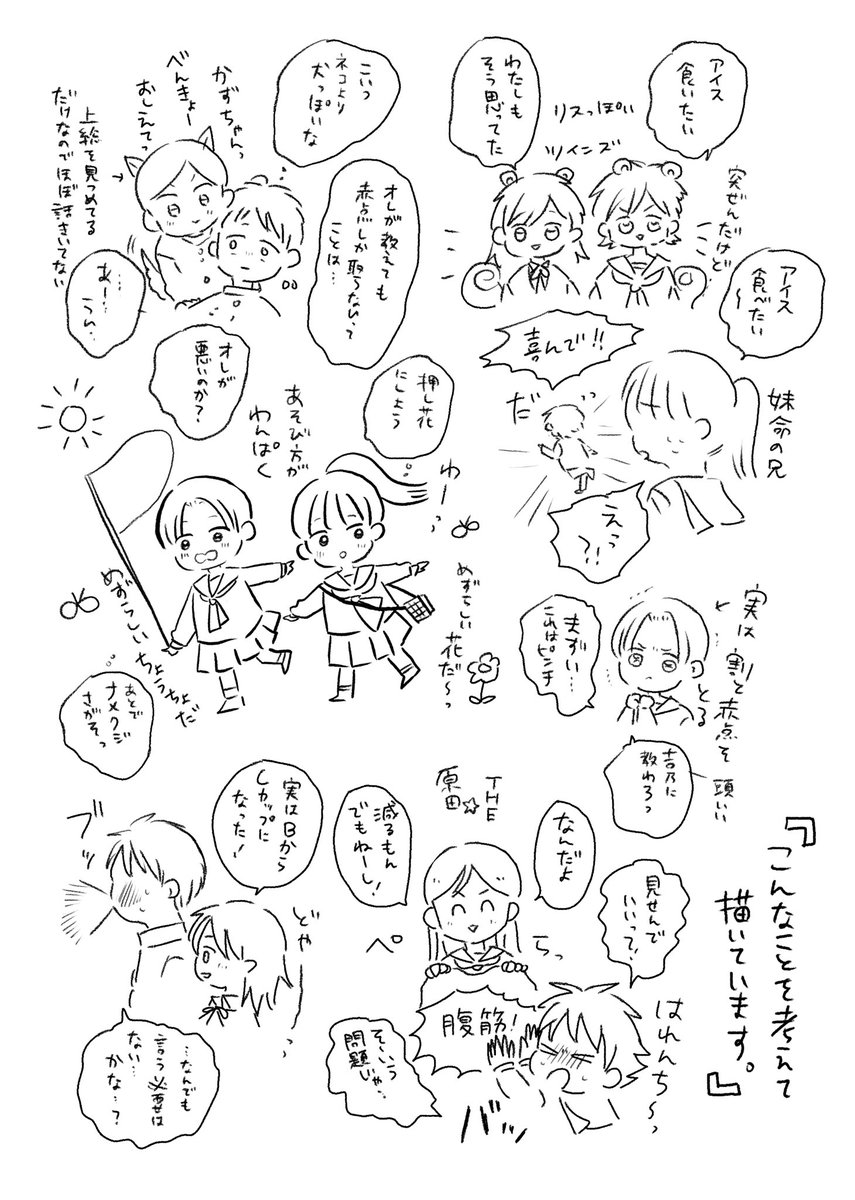 アイス
食いたい
わたしも
そう思ってた
リスっぽい
ツインズ
突ぜんだけど
アイス
食べたい
〜
喜んで!!
だ
妹命の兄
えっ
?!
こいつ
ネコより
犬っぽいな
かずちゃんっ
べんきょー
おしえてっ
上総を見つめてる
だけなのでほぼ話きいてない
オレが教えても
赤点しか取らないって
ことは…
あー…
うん…
オレが
悪いのか?
押し花
にしよう
あそび方が
わんぱく
わーっ
めずらしい
ちょうちょだ
めずらしい
花だ〜っ
あとで
ナメクジ
さがそっ
実は割と赤点をとる
まずい…
これはピンチ
吉乃に
教わろっ
頭いい
THE
原田☆
なんだよ
減るもん
でもねーし!
見せんで
いいって!
ぺらっ
腹筋!
はれんち〜っ
そーいう
問題じゃ…
バッ
実はBから
Cカップに
なった!
ブッ
どやーっ
…なんでも
言う必要は
ない…
かな…?
『こんなことを考えて
描いています。』